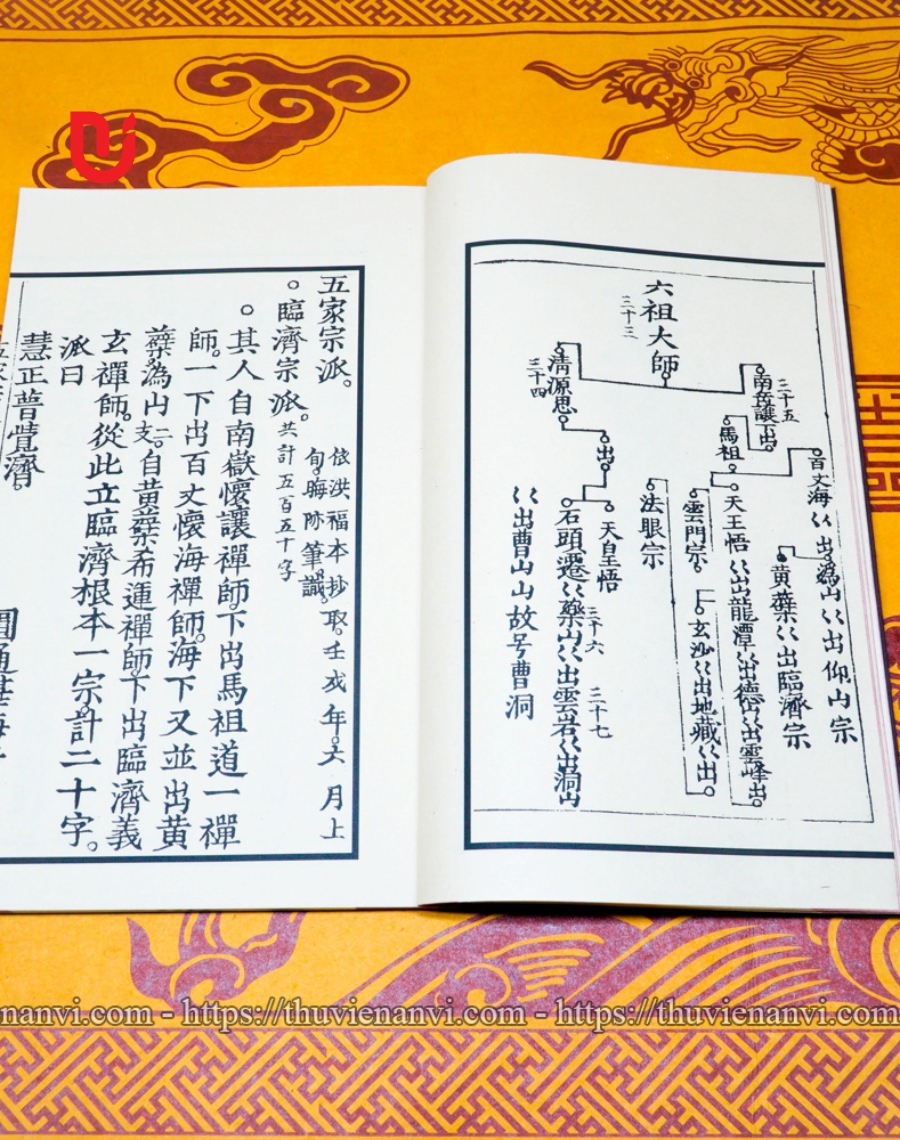 六祖大師
三十三
南岳讓下出
三十五
馬祖
百丈海〻出溈山〻出仰山宗
黃蘗〻出臨濟宗
天王悟〻出龍潭〻出德山〻出雪峰出
雲門宗
玄沙〻出地藏〻出
法眼宗
清源思
三十四
出
天皇悟
石頭遷〻藥山〻出雲岩〻出洞山
三十六
三十七
〻出曹山山故号曹洞
五家宗派。
依洪福本抄取。壬戌年。六月上
旬。晦跡筆識。
。臨濟宗派。共計五百五十字
。其人自南嶽懷讓禪師。下出馬祖道一禪
師。一下出百丈懷海禪師。海下又並出黃
蘗。溈山二支。自黃蘗希運禪師。下出臨濟義
玄禪師。從此立臨濟根本一宗。計二十字。
派曰
慧正普覺濟。
https://thuvienanvi.com - https://thuvienanvi.com